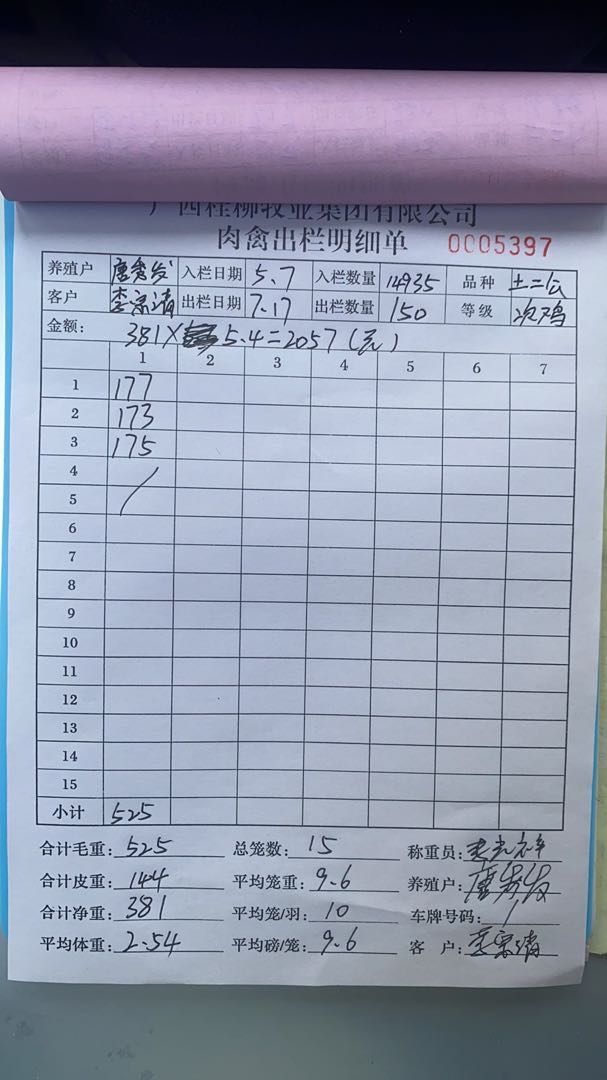 广西桂柳牧业集团有限公司
肉禽出栏明细单 0005397
养殖户 唐秀发 入栏日期 5.7 入栏数量 14935 品种 土二公
客户 李宗清 出栏日期 7.17 出栏数量 150 等级 次鸡
金额: 381× 5.4=2057(元)
1 2 3 4 5 6 7
1 177
2 173
3 175
4
5
6
7
8
9
10
11
12
13
14
15
小计 525
合计毛重: 525 总笼数: 15 称重员:
合计皮重: 144 平均笼重: 9.6 养殖户: 唐秀发
合计净重: 381 平均笼/羽: 10 车牌号码: /
平均体重: 2.54 平均磅/笼: 9.6 客 户: 李宗清